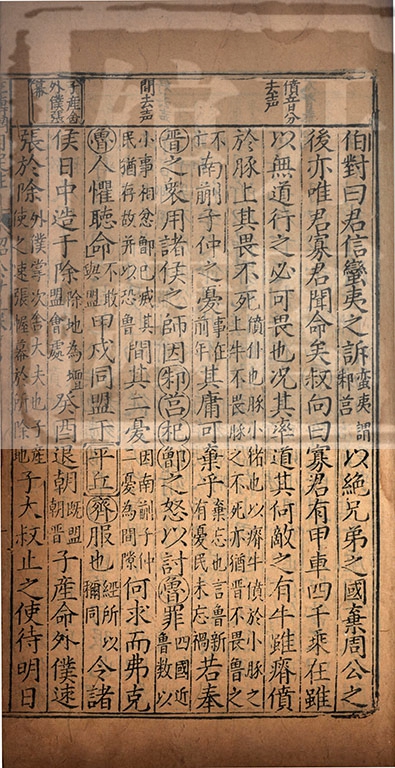 僨音分去声
間去声
子產舍外僕張幕
伯對曰君信蠻夷之訴蛮夷謂邾莒以絕兄弟之國棄周公之
後亦唯君寡君聞命矣叔向曰寡君有甲車四千乘在雖
以無道行之必可畏也况其率道其何敵之有牛雖瘠僨
於豚上其畏不死僨仆也豚小猪也以瘠牛僨於小豚之上牛不畏豚之不死亦猶晋不畏魯之
不亡南蒯子仲之憂事在前年其庸可棄乎棄忘也言魯新有憂民未忘禍若奉
晋之衆用諸侯之師因邾莒杞鄫之怒以討魯罪四國近魯數以
小事相忿鄫已滅其民猶存故并以恐魯間其二憂因南蒯子仲二憂為間隙何求而弗克
魯人懼聽命不敢與盟甲戌同盟于平丘齊服也經所以稱同令諸
侯日中造于除除地為壇盟會處癸酉退朝既盟朝晋子產命外僕速
張於除外僕掌次舍大夫也子產使之速張幄幕於所除地子大叔止之使待明日